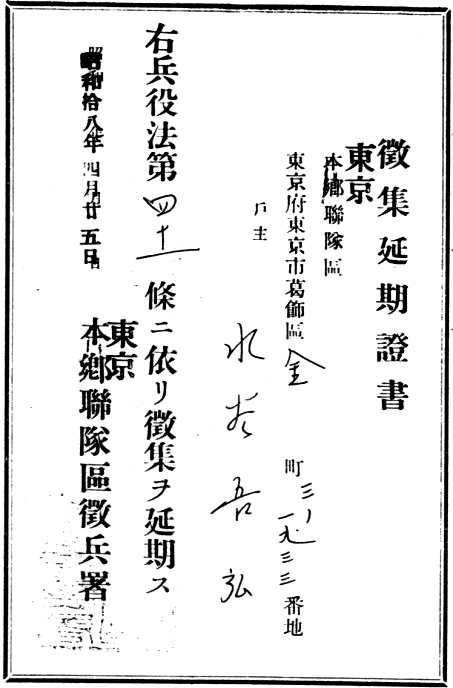 徵集延期證書
東京
本鄕聯隊區
東京府東京市葛飾區金町三ノ一九三三番地
戶主
水 吾弘
右兵役法第四十一條ニ依リ徵集ヲ延期ス
昭和拾八年四月廿五日
東京
本鄕聯隊區徵兵署